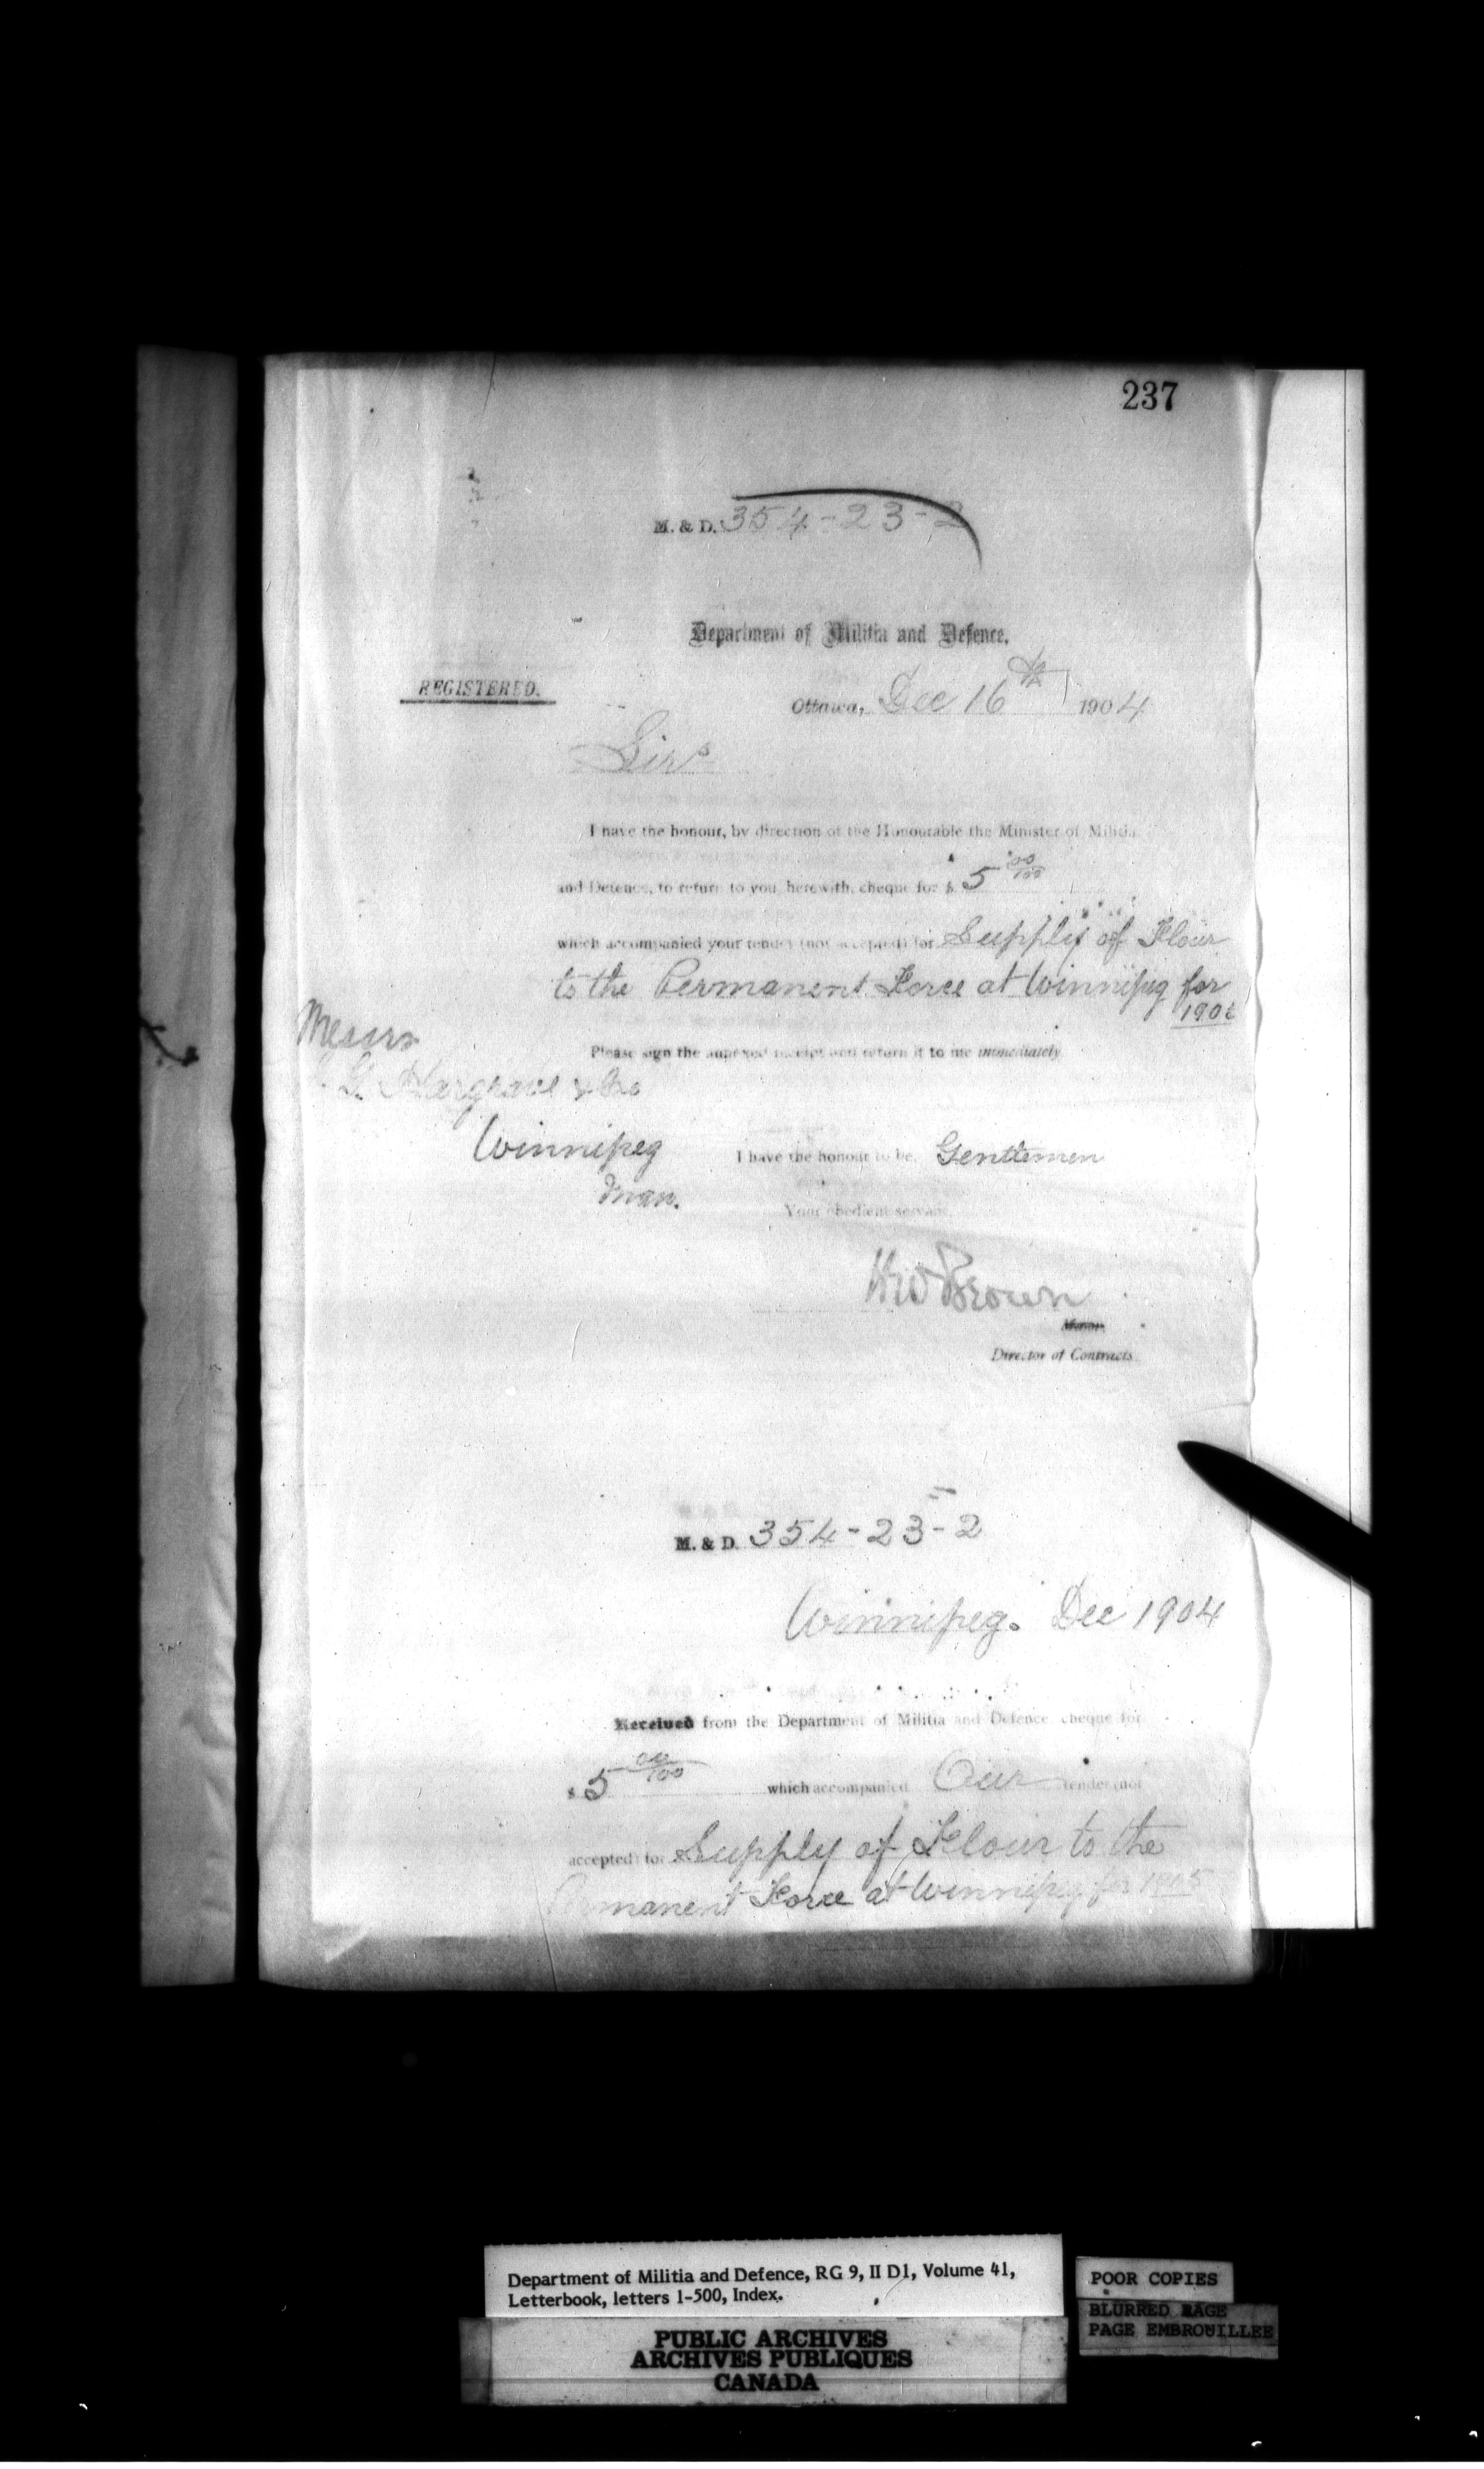 237
M. & D. 354-23-2
Department of Militia and Defence.
REGISTERED.
Ottawa, Dec 16th 1904
Sirs
I have the honour, by direction of the Honourable the Minister of Militia
and Defence, to return to you, herewith, cheque for $ 5 00/100
which accompanied your tender (not accepted) for Supply of Flour
to the Permanent Force at Winnipeg for
Messrs
Please sign the annexed receipt and return it to me immediately.
G. Hargrave & Co
Winnipeg
I have the honour to be, Gentlemen
Man.
Your obedient servant,
HW Brown
Director of Contracts.
M. & D. 354-23-2
Winnipeg. Dec 1904
Received from the Department of Militia and Defence cheque for
$ 5 00/100 which accompanied Our tender (not
accepted) for Supply of Flour to the
Permanent Force at Winnipeg for 1905
Department of Militia and Defence, RG 9, II D1, Volume 41,
Letterbook, letters 1-500, Index.
POOR COPIES
BLURRED PAGE
PAGE EMBROUILLEE
PUBLIC ARCHIVES
ARCHIVES PUBLIQUES
CANADA